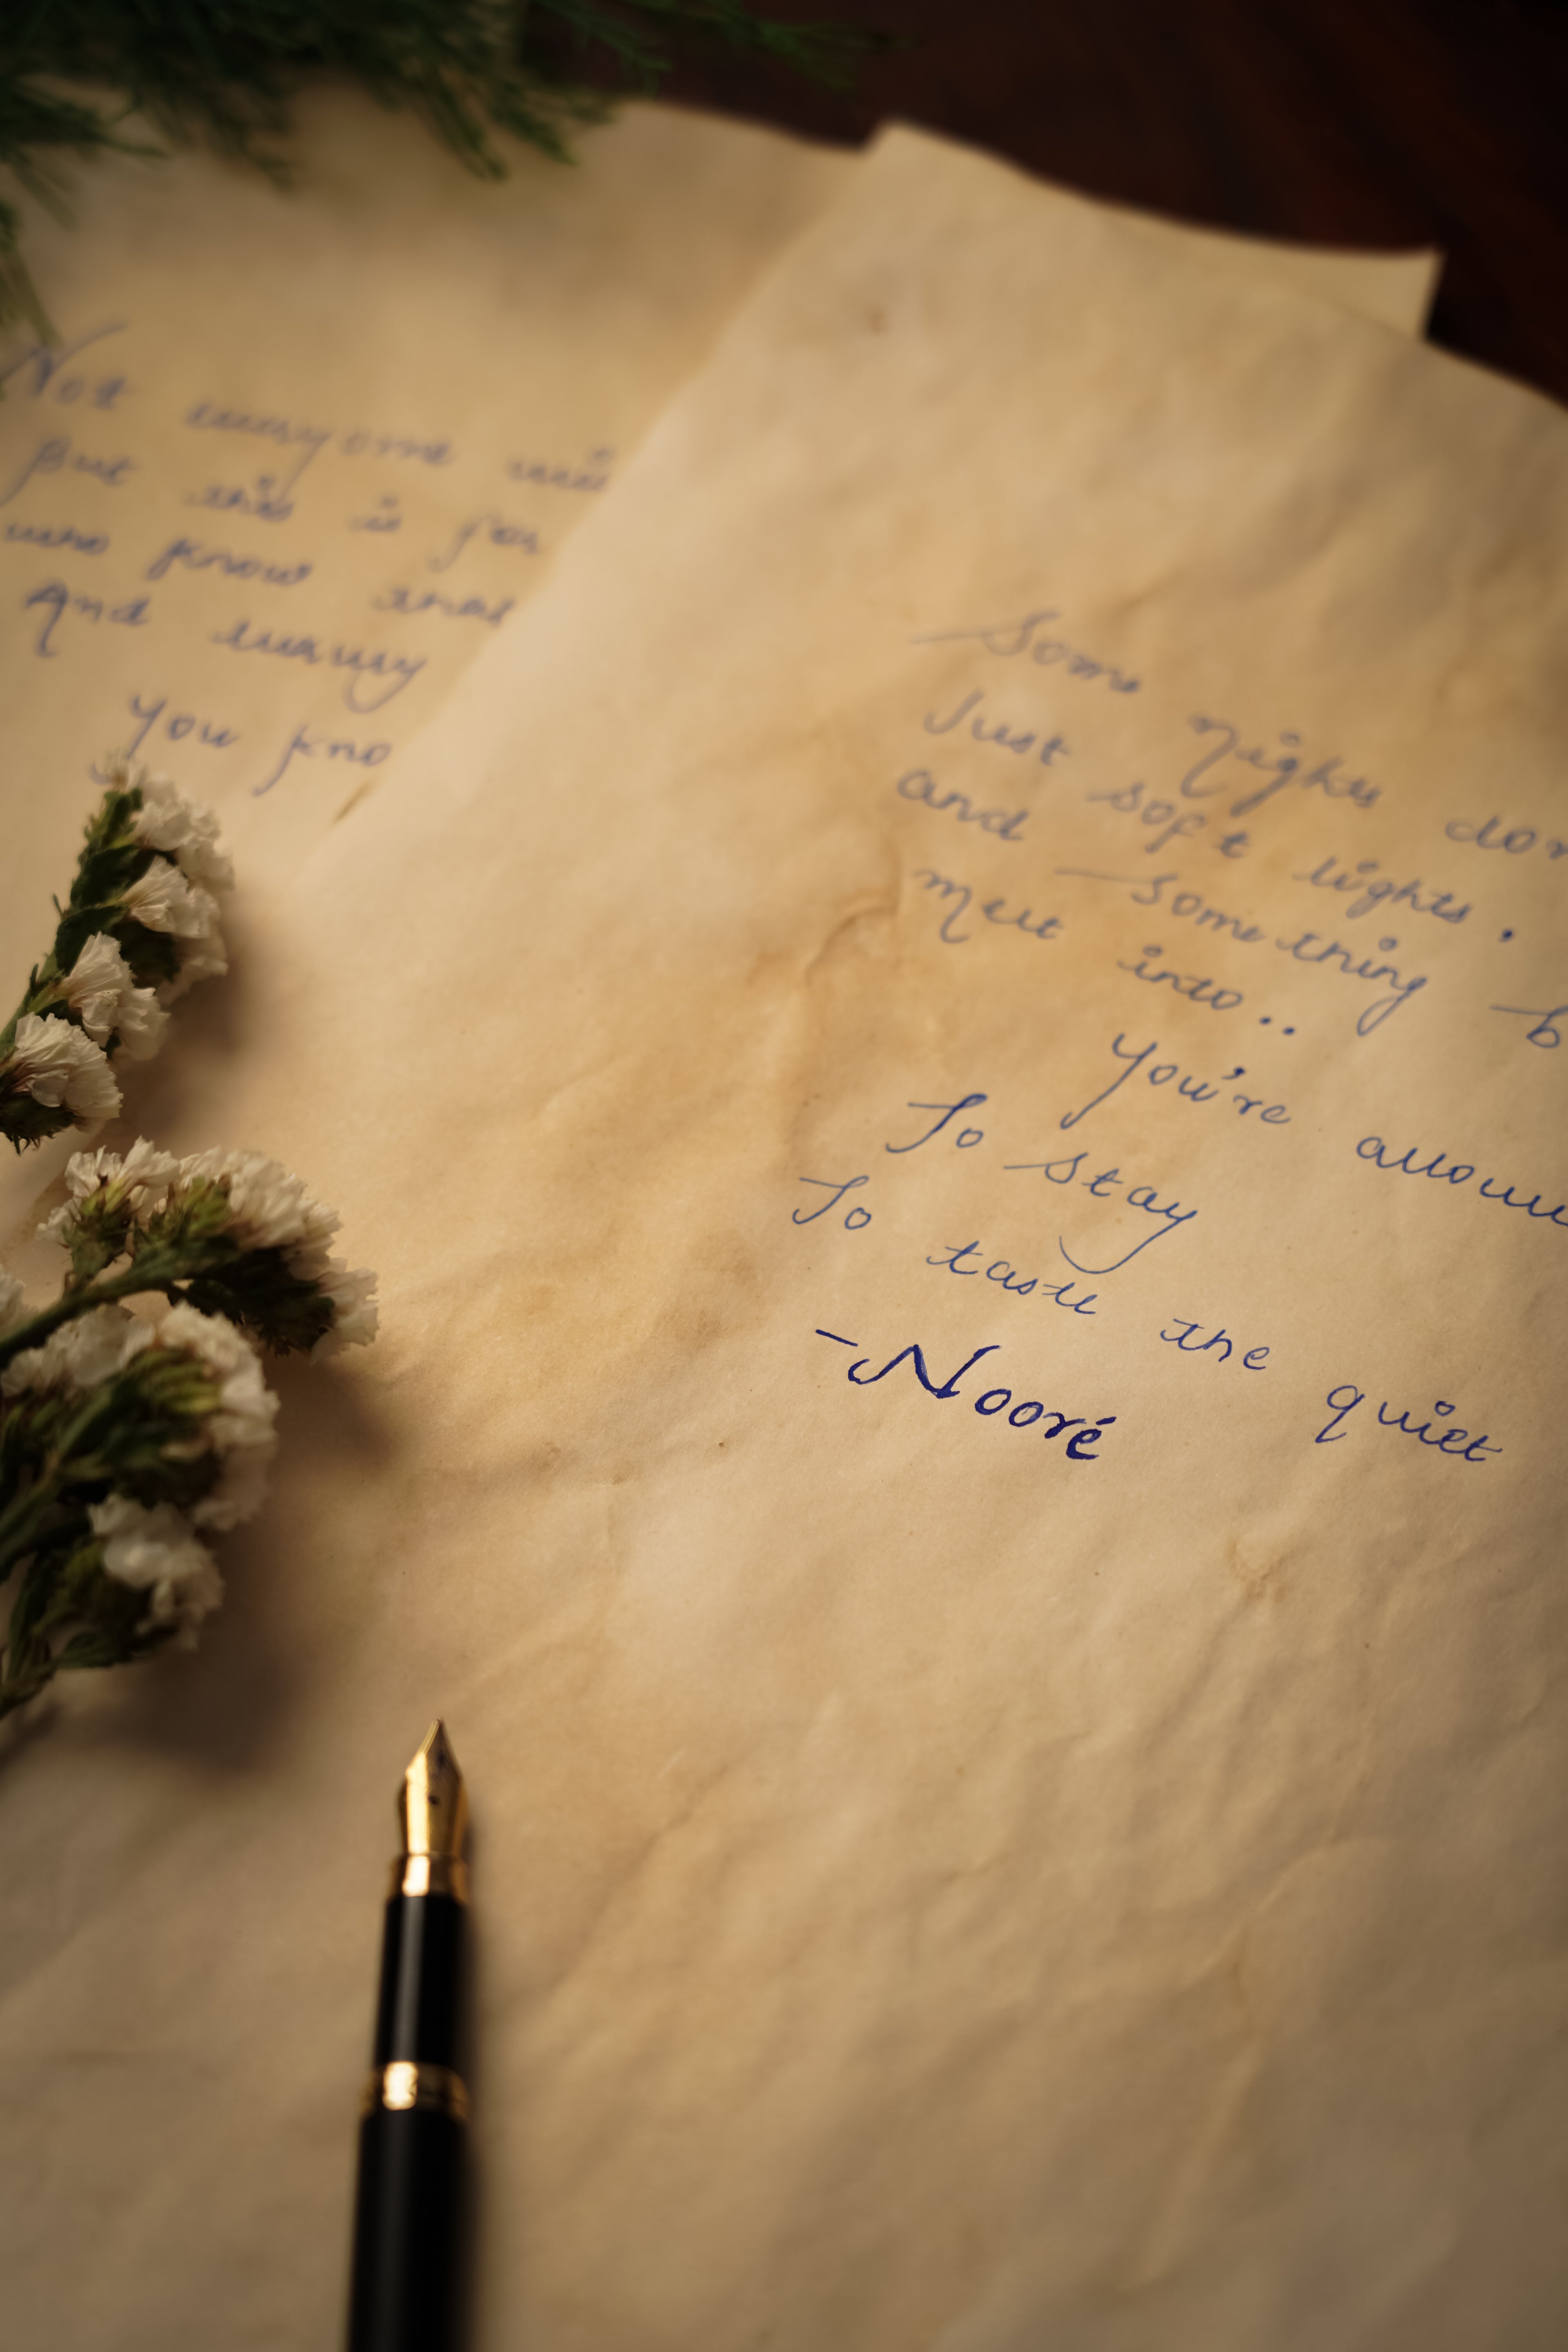 Not everyone
But this is for
who know that
And luxury
you kno
Some nights don
Just soft lights.
and something b
melt into..
you're allowe
To stay
To taste the quiet
-Nooré